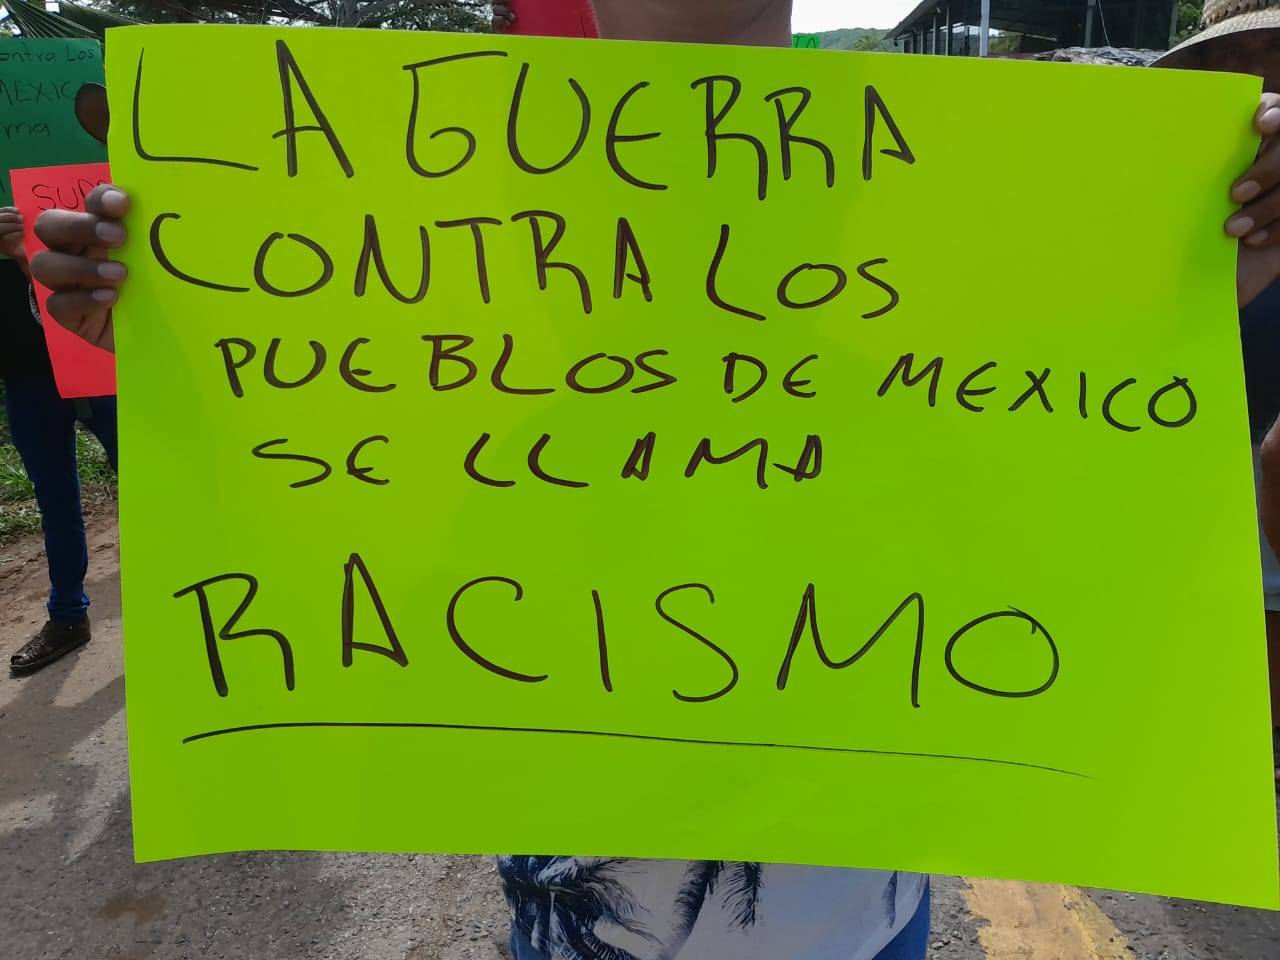 LA GUERRA
CONTRA LOS
PUEBLOS DE MEXICO
SE LLAMA
RACISMO
contra Los
MEXICO